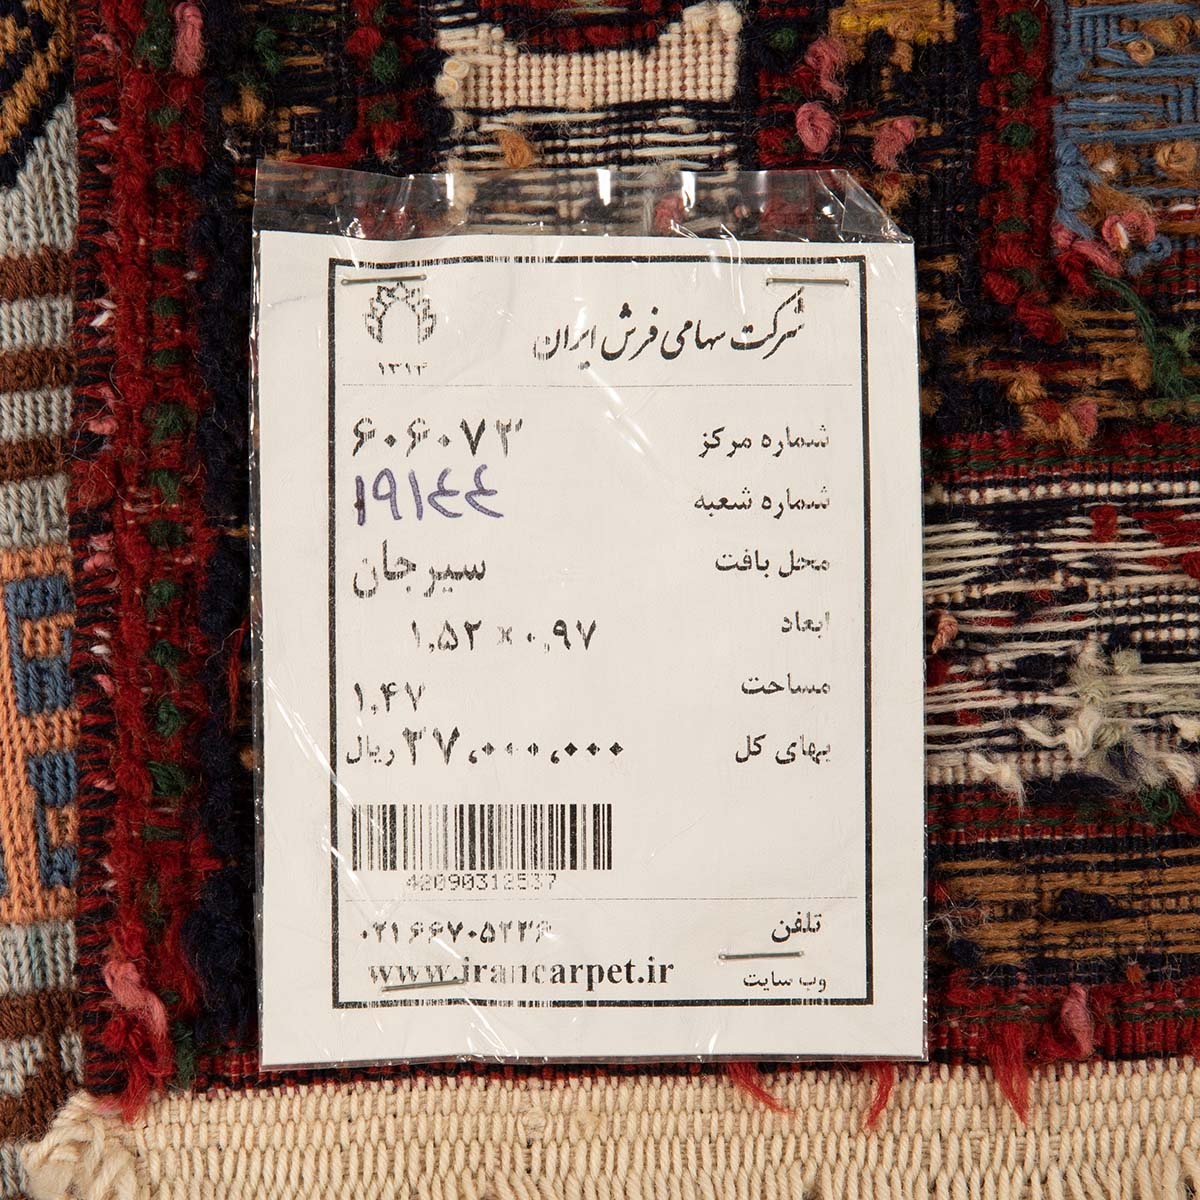 شرکت سهامی فرش ایران
۱۳۱۴
شماره مرکز ۶۰۶۰۷۳
شماره شعبه ۱۹۱۴۴
محل بافت سیرجان
ابعاد ۱,۵۲ × ۰,۹۷
مساحت ۱,۴۷
بهای کل ۳۷,۰۰۰,۰۰۰ ریال
42090312537
تلفن ۰۲۱۶۶۷۰۵۲۳۶
وب سایت www.irancarpet.ir